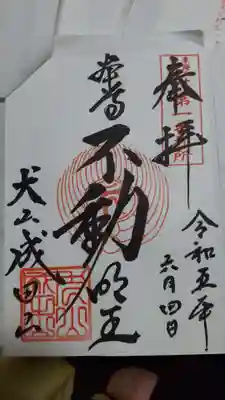 奉拝
令和五年
六月四日
本尊
不動
明王
犬山成田山